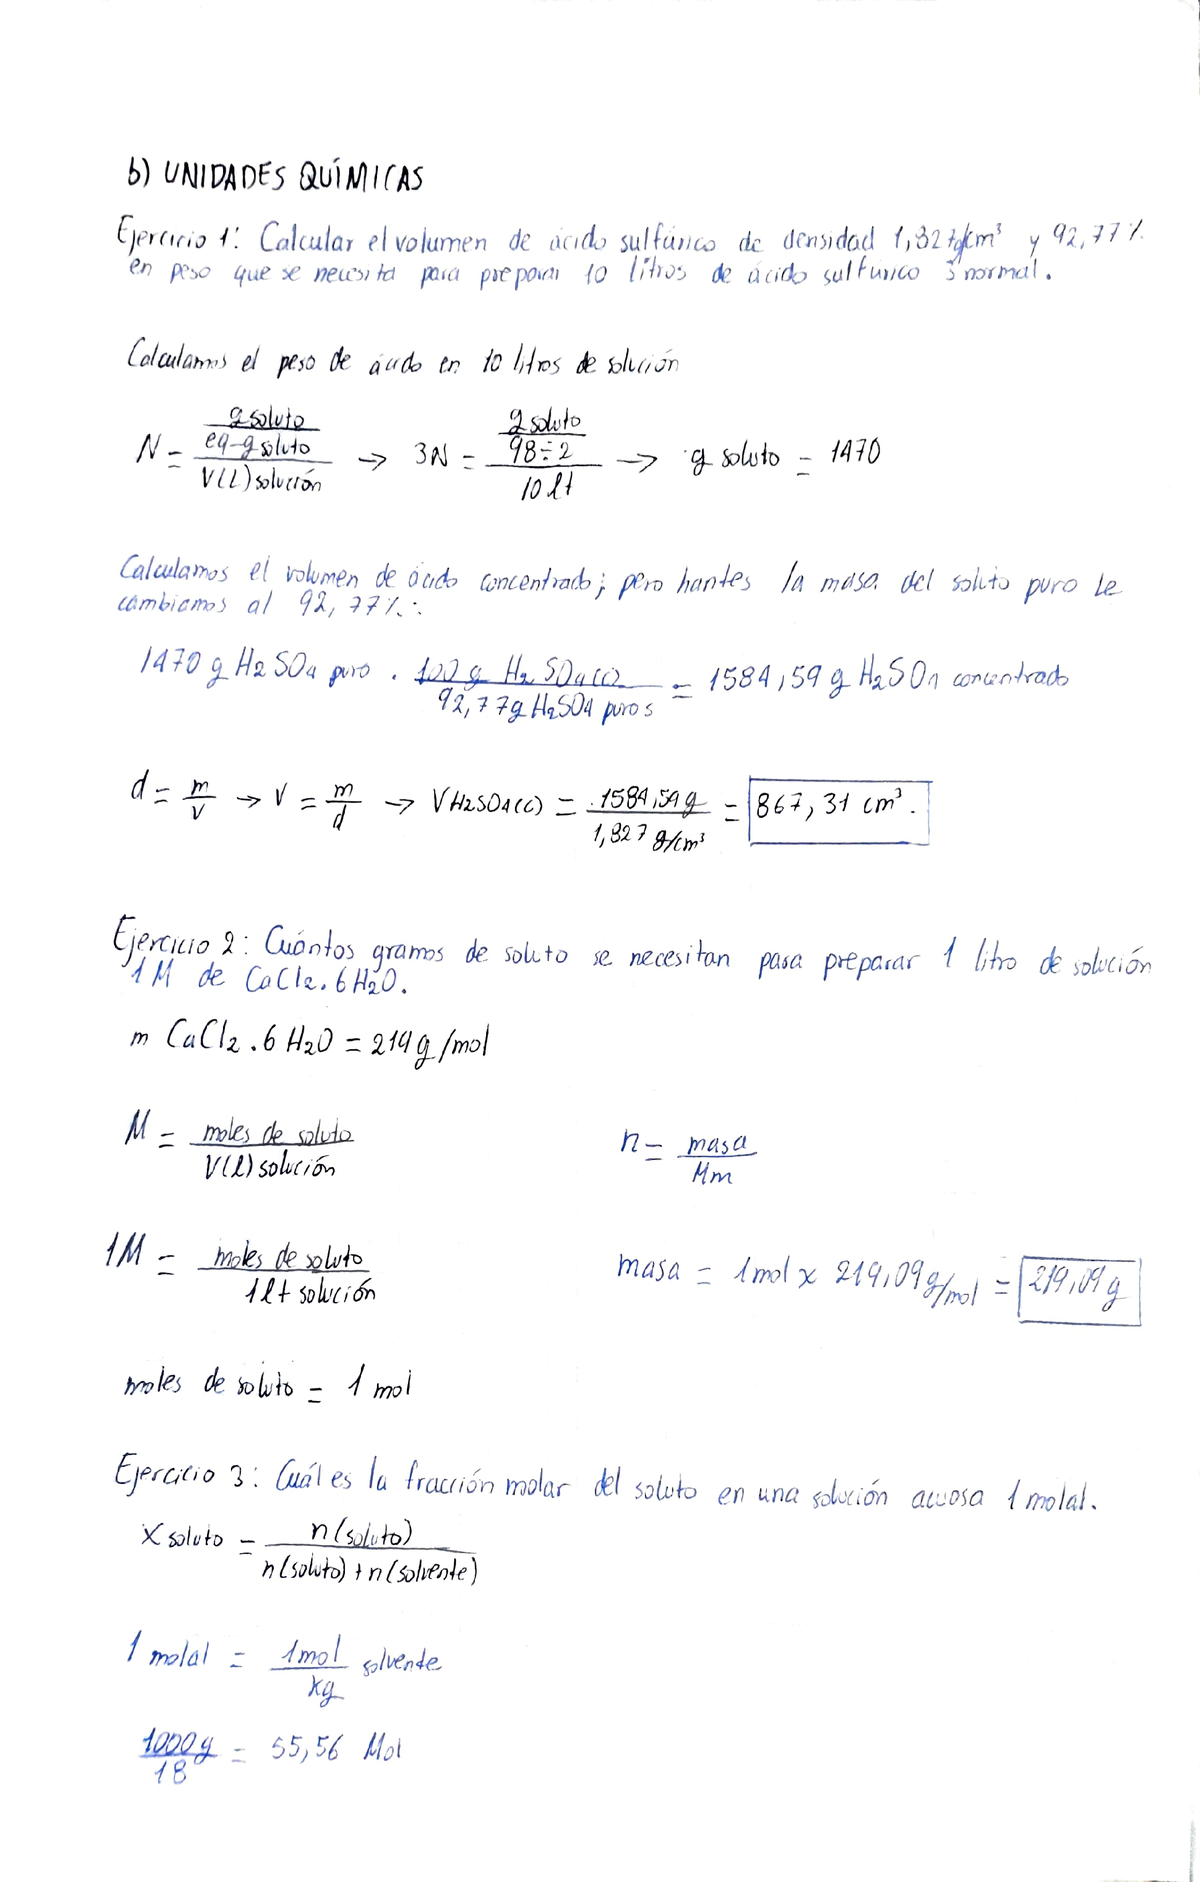 b) UNIDADES QUÍMICAS
Ejercicio 1: Calcular el volumen de ácido sulfúrico de densidad 1,827g/cm³ y 92,77%
en peso que se necesita para preparar 10 litros de ácido sulfurico 3 normal.
Calculamos el peso de ácido en 10 litros de solución
N = (g soluto / eq-g soluto) / V(L) solución → 3N = (g soluto / 98÷2) / 10 lt → g soluto = 1470
Calculamos el volumen de ácido concentrado; pero hantes la masa del soluto puro le
cambiamos al 92,77%:
1470 g H2SO4 puro . 100 g H2SO4(c) / 92,77g H2SO4 puros = 1584,59 g H2SO4 concentrado
d = m/v → V = m/d → V H2SO4(c) = 1584,59 g / 1,827 g/cm³ = 867,31 cm³.
Ejercicio 2: Cuántos gramos de soluto se necesitan para preparar 1 litro de solución
1M de CaCl2.6H2O.
m CaCl2.6H2O = 219 g/mol
M = moles de soluto / V(l) solución n = masa / Mm
1M = moles de soluto / 1lt solución masa = 1mol x 219,09g/mol = 219,09 g
moles de soluto = 1 mol
Ejercicio 3: Cuál es la fracción molar del soluto en una solución acuosa 1 molal.
X soluto = n(soluto) / n(soluto) + n(solvente)
1 molal = 1mol / kg solvente
1000g / 18 = 55,56 Mol